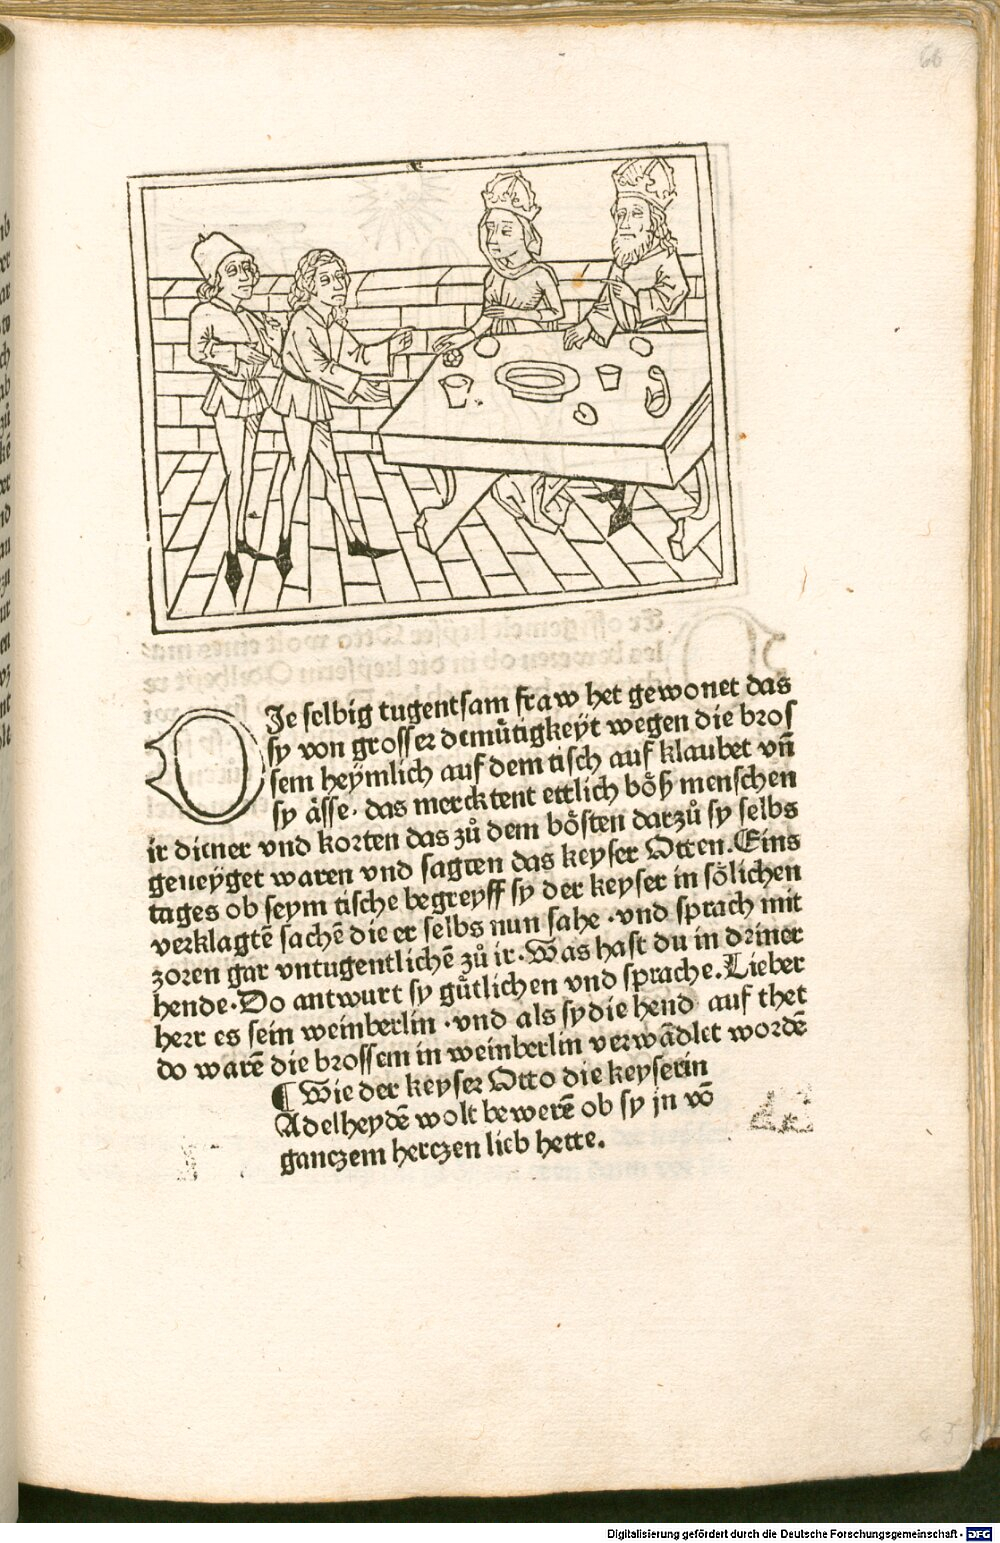 66
DJe selbig tugentsam fraw het gewonet das
sy von grosser demuͤtigkeyt wegen die bros
sem heÿmlich auf dem tisch auf klaubet vn̄
sy aͤsse. das mercktent ettlich boͤß menschen
ir diener vnd korten das zuͦ dem boͤsten darzuͦ sy selbs
geneÿget waren vnd sagten das keyser Otten. Eins
tages ob seym tische begreyff sy der keyser in soͤlichen
verklagtē sachē die er selbs nun sahe. vnd sprach mit
zoren gar vntugentlichē zuͦ ir. Was hast du in deiner
hende. Do antwurt sy guͤtlichen vnd sprache. Lieber
herr es sein weinberlin. vnd als sy die hend auf thet
do warē die brossem in weinberlin verwādlet wordē
¶ Wie der keyser Otto die keyserin
Adelheydē wolt bewerē ob sy jn vō
ganczem herczen lieb hette.
Digitalisierung gefördert durch die Deutsche Forschungsgemeinschaft - DFG